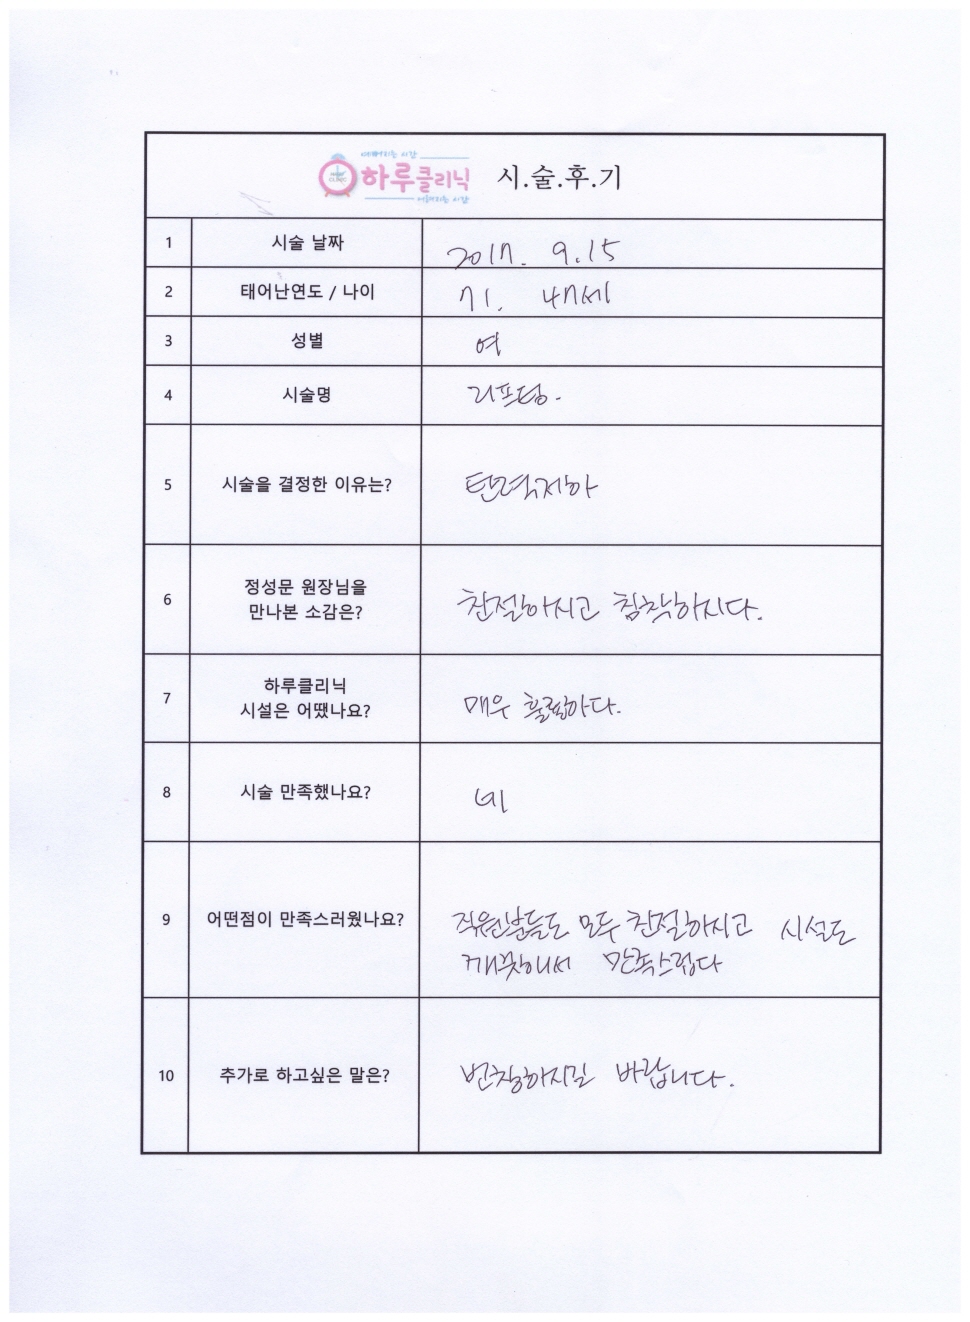 예뻐지는 시간
하루클리닉 시.술.후.기
어려지는 시간
1 시술 날짜 2017. 9.15
2 태어난연도 / 나이 71. 47세
3 성별 여
4 시술명 리프팅.
5 시술을 결정한 이유는? 탄력저하
6 정성문 원장님을
만나본 소감은? 친절하시고 침착하시다.
7 하루클리닉
시설은 어땠나요? 매우 훌륭하다.
8 시술 만족했나요? 네
9 어떤점이 만족스러웠나요? 직원분들도 모두 친절하시고 시설도
깨끗해서 만족스럽다
10 추가로 하고싶은 말은? 번창하시길 바랍니다.